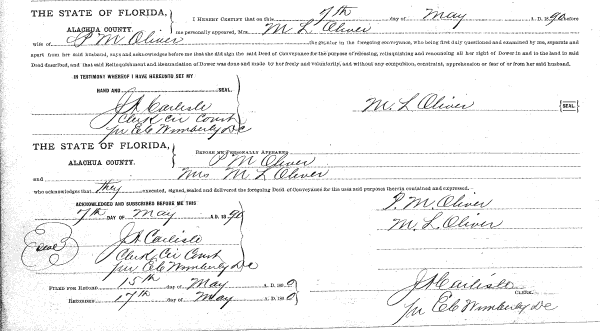 THE STATE OF FLORIDA,
ALACHUA COUNTY.
I HEREBY CERTIFY that on this 7th day of May A. D. 1890 before
me personally appeared, Mrs. M. L. Oliver
wife of P M Oliver the grantor in the foregoing conveyance, who being first duly questioned and examined by me, separate and
apart from her said husband, says and acknowledges before me that she did sign the said Deed of Conveyance for the purpose of releasing, relinquishing and renouncing all her right of Dower in and to the land in said
Deed described, and that said Relinquishment and Renunciation of Dower was done and made by her freely and voluntarily, and without any compulsion, constraint, apprehension or fear of or from her said husband.
IN TESTIMONY WHEREOF I HAVE HEREUNTO SET MY
HAND AND SEAL.
J A Carlisle
Clerk Cir Court
per E C Wimberly D C
M. L. Oliver SEAL
THE STATE OF FLORIDA,
ALACHUA COUNTY.
BEFORE ME PERSONALLY APPEARED
P M Oliver
and Mrs M L Oliver
who acknowledges that they executed, signed, sealed and delivered the foregoing Deed of Conveyance for the uses and purposes therein contained and expressed.
ACKNOWLEDGED AND SUBSCRIBED BEFORE ME THIS
7th DAY OF May A. D. 1890
Seal
J A Carlisle
Clerk Cir Court
per E C Wimberly D C
P. M. Oliver
M. L. Oliver
FILED FOR RECORD 15th day of May A. D. 1890
RECORDED 17th day of May A. D. 1890
J A Carlisle
CLERK.
per E C Wimberly D C